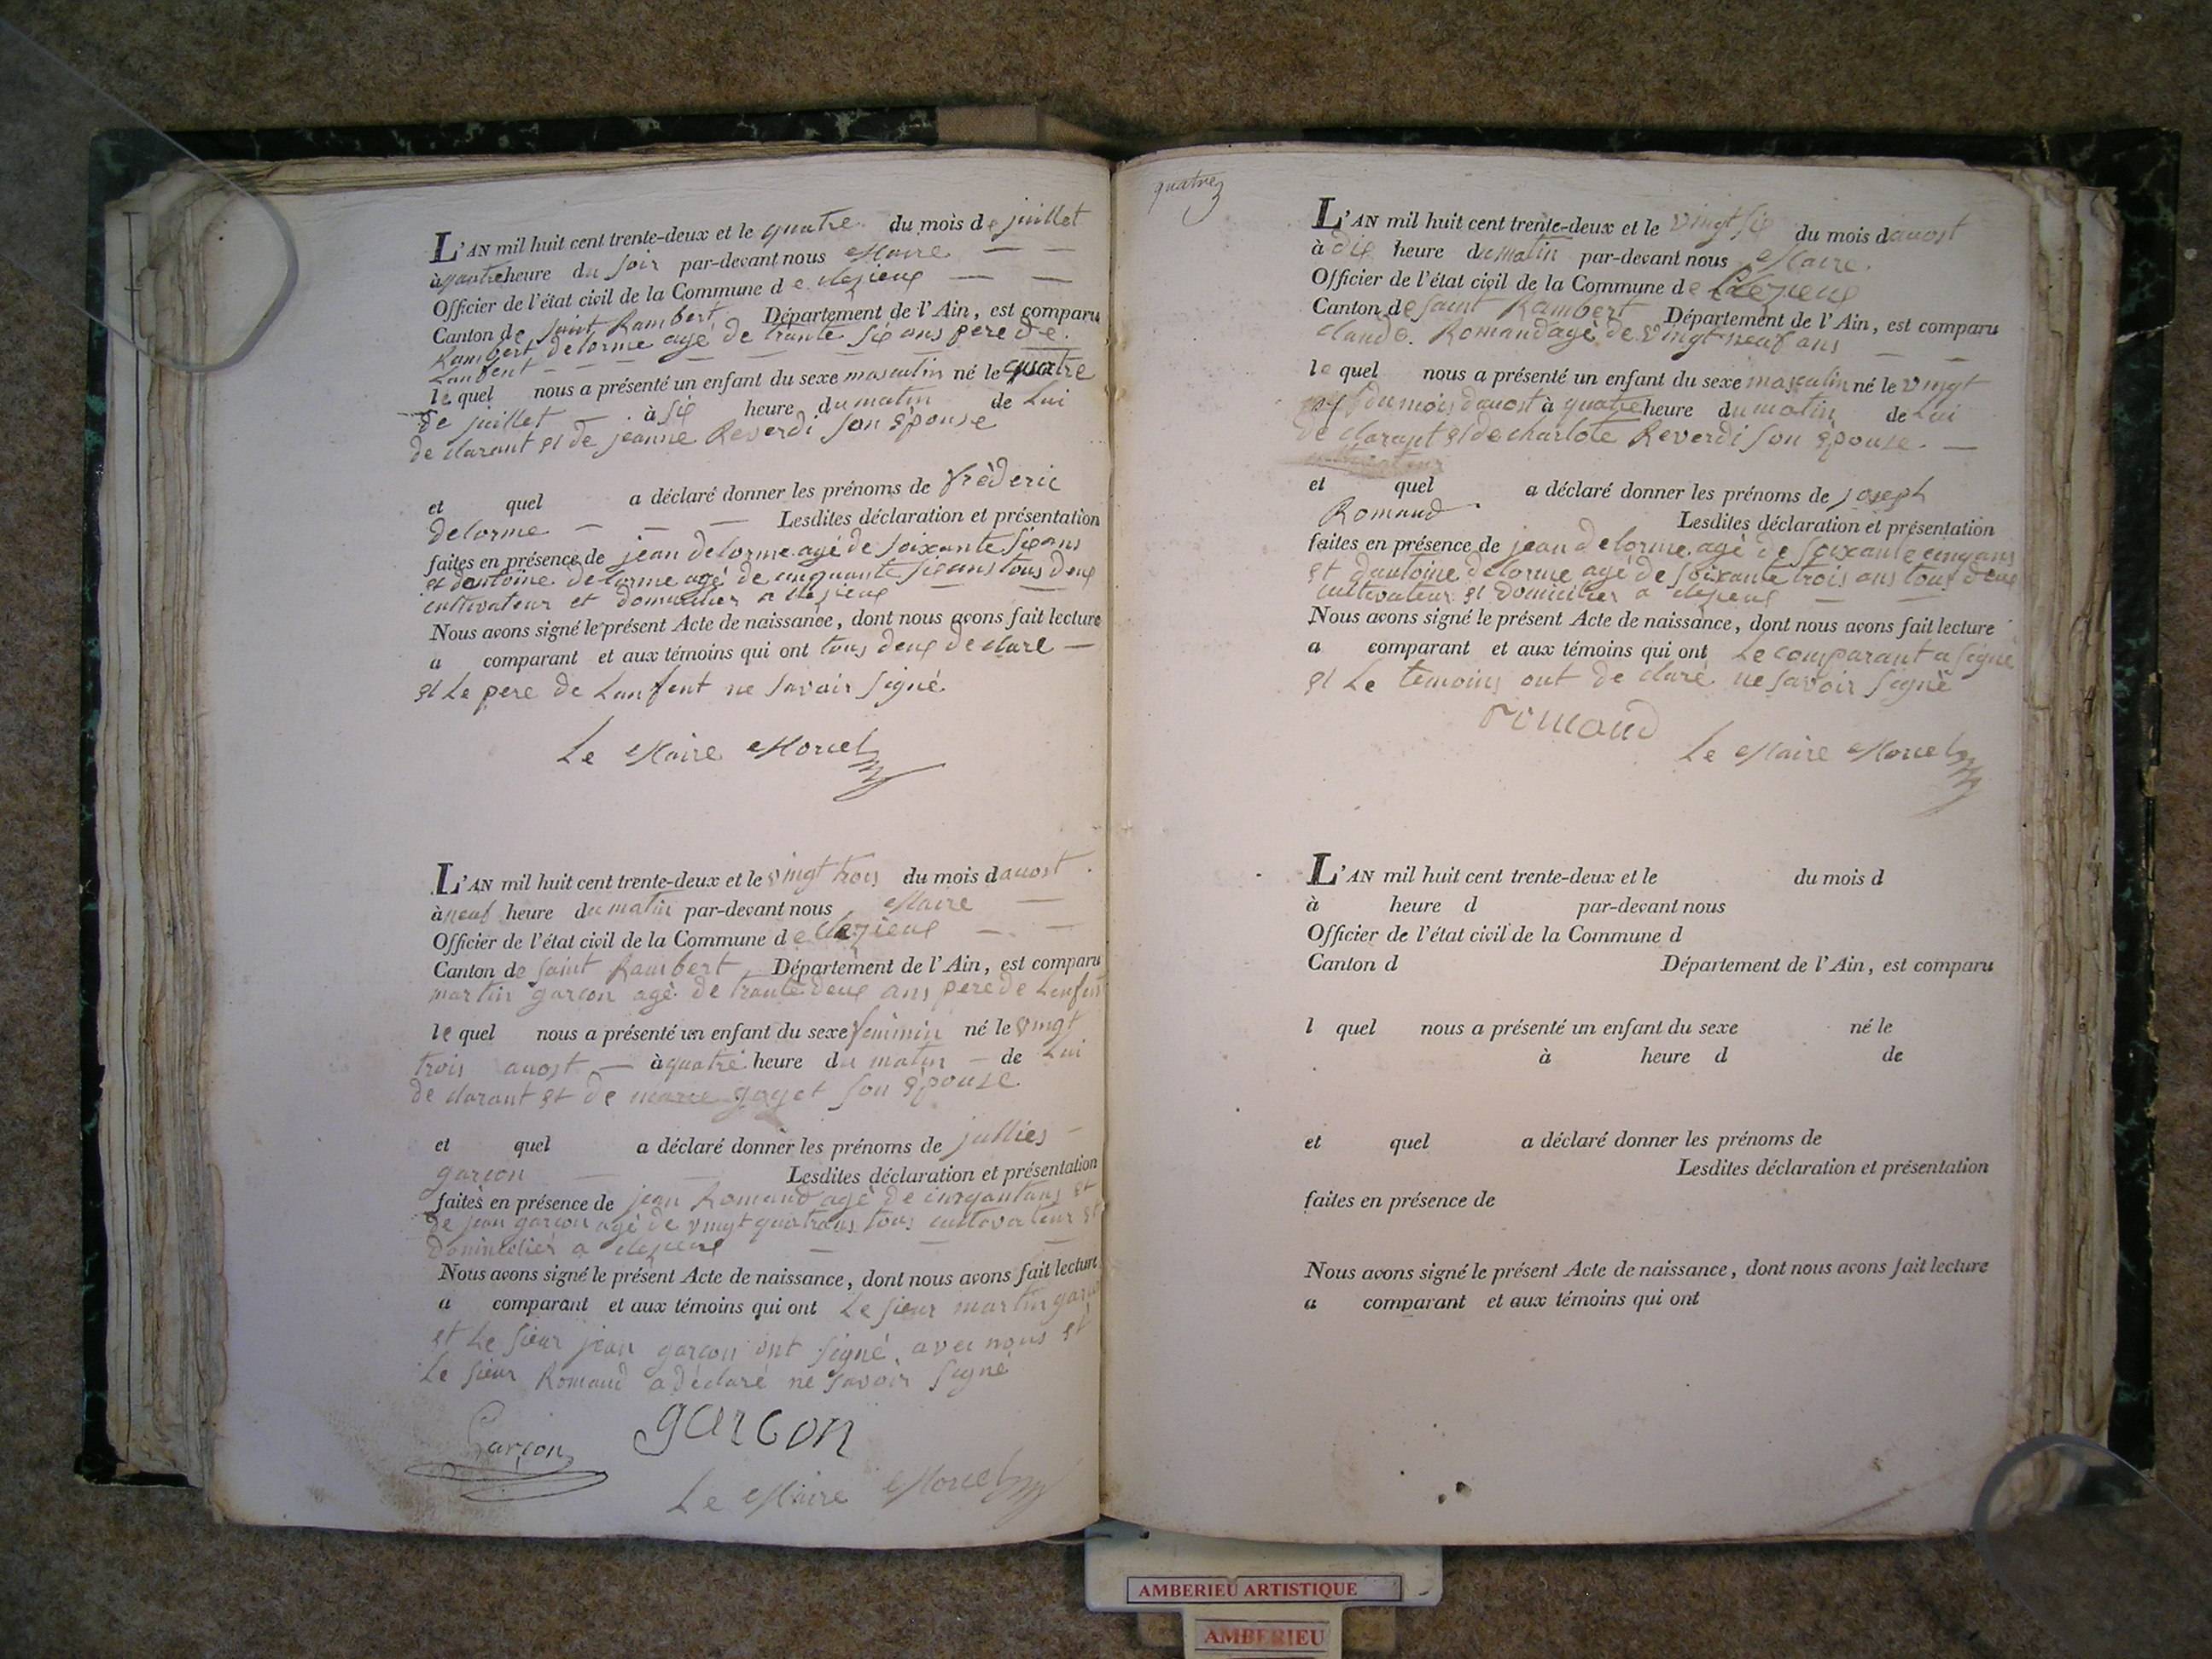 L'AN mil huit cent trente-deux et le quatre du mois de juillet
à quatre heure du soir par-devant nous Maire
Officier de l'état civil de la Commune de clezieux
Canton de saint Rambert Département de l'Ain, est comparu
Rambert delorme agé de trante six ans pere de
Lanfent
le quel nous a présenté un enfant du sexe masculin né le quatre
de juillet à six heure du matin de Lui
de clarant et de jeanne Reverdi son épouse
et quel a déclaré donner les prénoms de fréderic
delorme Lesdites déclaration et présentation
faites en présence de jean delorme agé de soixante six ans
et dantoine delorme agé de cinquante six ans tous deux
cultivateur et domicilier a clezieux
Nous avons signé le présent Acte de naissance, dont nous avons fait lecture
a comparant et aux témoins qui ont tous deux de claré
et Le pere de Lanfent ne savoir signé
Le Maire Morcel
L'AN mil huit cent trente-deux et le vingt trois du mois d auost
à neuf heure du matin par-devant nous Maire
Officier de l'état civil de la Commune de clezieux
Canton de saint Rambert Département de l'Ain, est comparu
martin garcon agé de trante deux ans pere de Lenfant
le quel nous a présenté un enfant du sexe feminin né le vingt
trois auost à quatre heure du matin de Lui
de clarant et de marie goyet son épouse
et quel a déclaré donner les prénoms de jullies
garcon Lesdites déclaration et présentation
faites en présence de jean Romand agé de et
de jean garcon agé de vingt quatrans tous cultivateur et
a clezieux
Nous avons signé le présent Acte de naissance, dont nous avons fait lecture
a comparant et aux témoins qui ont Le sieur martin garcon
et Le sieur jean garcon ont signé avec nous et
Le sieur Romand a déclaré ne savoir signé
Garçon garcon
Le Maire Morcel
quatre
L'AN mil huit cent trente-deux et le vingt six du mois d auost
à dix heure du matin par-devant nous Maire
Officier de l'état civil de la Commune de clezieux
Canton de saint Rambert Département de l'Ain, est comparu
claude Romand agé de vingt neuf ans
le quel nous a présenté un enfant du sexe masculin né le vingt
du mois dauost à quatre heure du matin de Lui
de clarant et de charlote Reverdi son épouse
et quel a déclaré donner les prénoms de joseph
Romand Lesdites déclaration et présentation
faites en présence de jean delorme agé de soixante cinq ans
et dantoine delorme agé de soixante trois ans tous deux
cultivateur et domicilier a clezieux
Nous avons signé le présent Acte de naissance, dont nous avons fait lecture
a comparant et aux témoins qui ont Le comparant a signé
et Le temoins ont de claré ne savoir signé
romand
Le Maire Morcel
L'AN mil huit cent trente-deux et le du mois d
à heure d par-devant nous
Officier de l'état civil de la Commune d
Canton d Département de l'Ain, est comparu
l quel nous a présenté un enfant du sexe né le
à heure d de
et quel a déclaré donner les prénoms de
Lesdites déclaration et présentation
faites en présence de
Nous avons signé le présent Acte de naissance, dont nous avons fait lecture
a comparant et aux témoins qui ont
AMBERIEU ARTISTIQUE
AMBERIEU